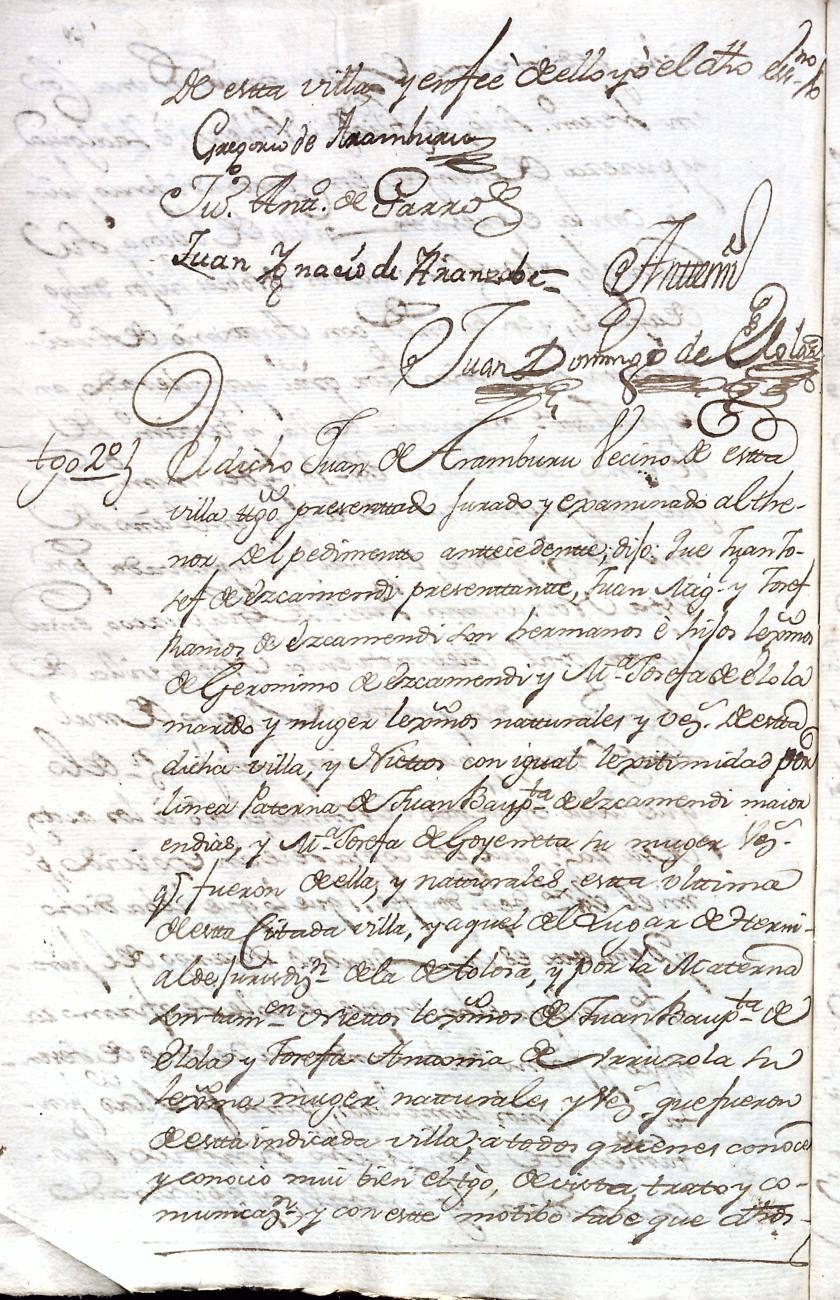 De estta villa, y en feè de ello yò el dho essno
Gregorio de Aramburu
Juº. Antº. de Garro
Juan Ygnacio de Aranzabe
Antemi
Juan Domingo de Elola
tgo 2º} El dicho Juan de Aramburu Vecino de estta
villa tgo presenttado Jurado y examinado al the-
nor del pedimento anttecedentte; dijo: Que Juan Jo-
sef de Ezcamendi presenttante, Juan Mig.l y Josef
Ramos de Ezcamendi son hermanos è hijos lexmos
de Geronimo de Ezcamendi y M.a Josefa de Elola
marido y muger lexmos natturales y vez.s de estta
dicha villa, y Niettos con igual lexitimidad por
linea Paterna de Juan Baup.ta de Ezcamendi maior
en dias, y M.a Josefa de Goyeneta su muger Vez.s
q.e fueron de ella, y natturales, estta ultima
de estta Cittada villa, y aquel del Lugar de Herni-
alde Jurisdiz.n de la de Tolosa, y por la Materna
son tam.en Niettos lexmos de Juan Baup.ta de
Elola y Josefa Anttonia de Urruzola su
lexma muger natturales y Vez.s que fueron
de estta indicada villa, a todos quienes conoce
y conocio mui bien el tgo, de vista, trato y co-
municaz.n, y con estte motibo sabe que dhos